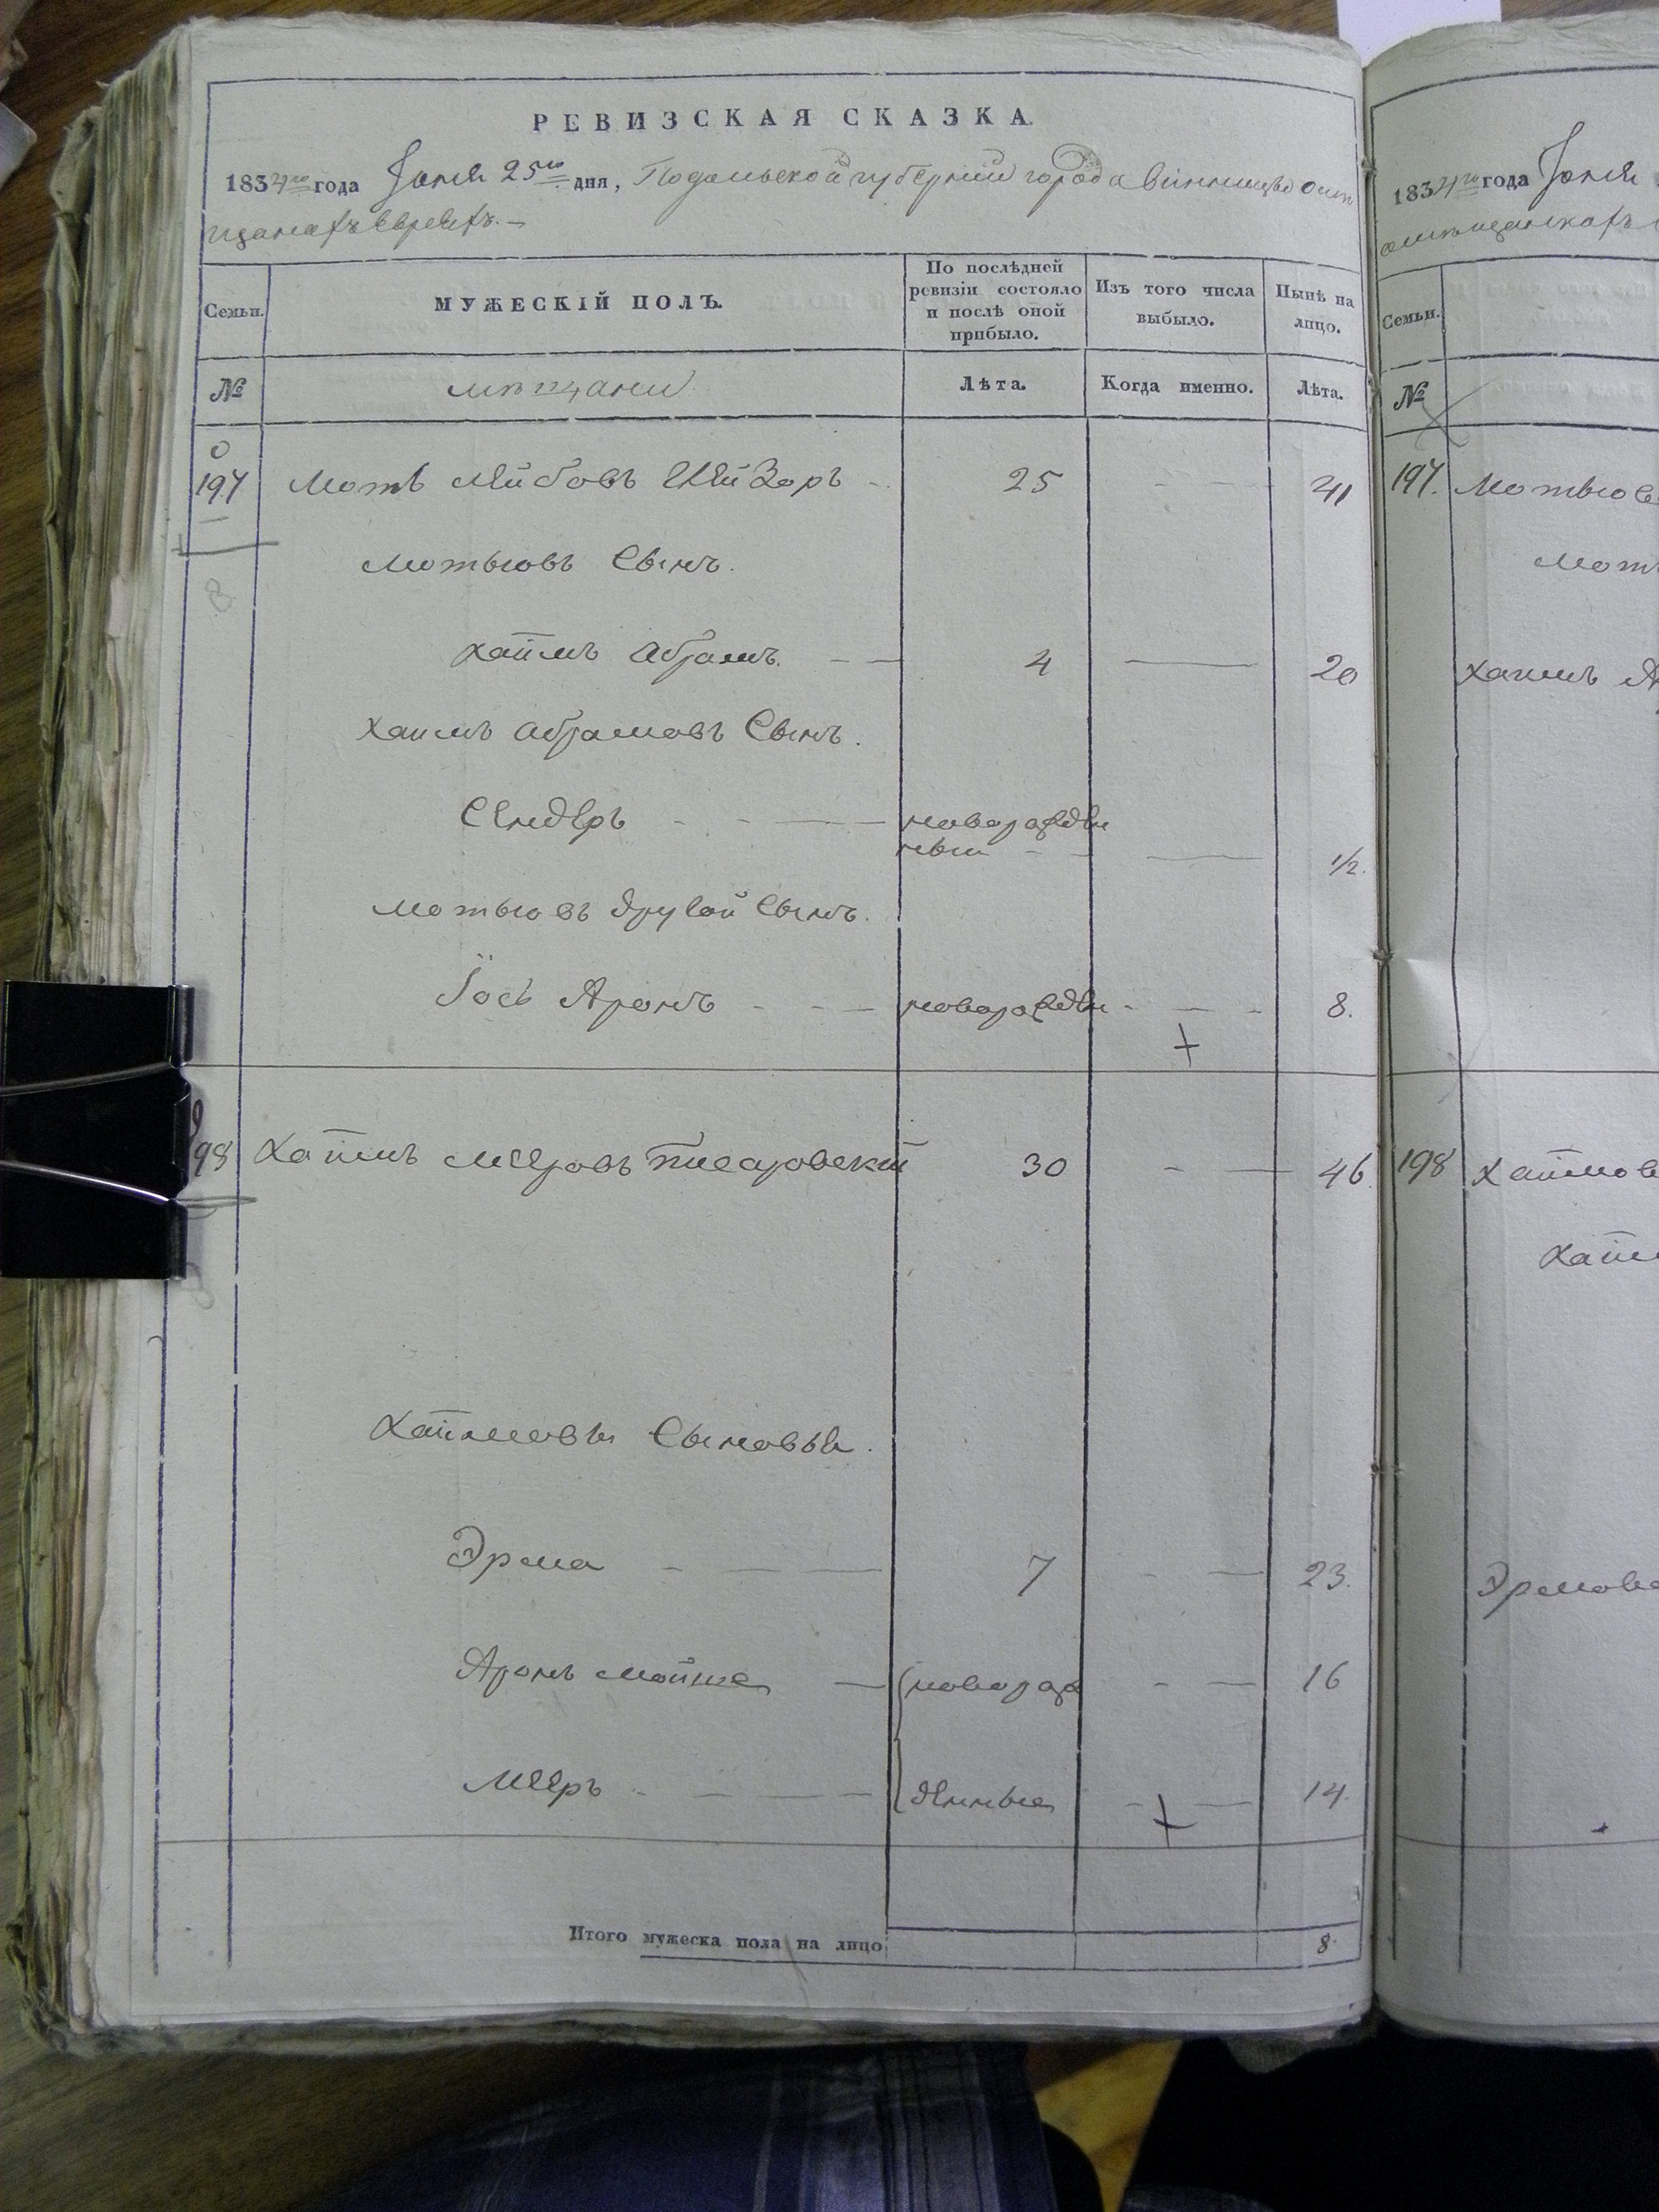 РЕВИЗСКАЯ СКАЗКА.
1834го года Іюня 25го дня, Подольской губерніи города Винницы о мѣ
щанахъ Евреяхъ. —
Семьи. МУЖЕСКІЙ ПОЛЪ. По послѣдней ревизіи состояло и послѣ оной прибыло. Изъ того числа выбыло. Нынѣ на лицо.
№ мѣщани Лѣта. Когда именно. Лѣта.
197 Моть Лейбовъ 25 41
Мотьювъ Сынъ.
Хаимъ Абрамъ. 4 20
Хаимъ Абрамовъ Сынъ.
Сендеръ новорожде
ный 1/2.
Мотьювъ другой Сынъ.
Іось Аронъ новорожде 8.
198 Хаимъ Мееровъ Писаровский 30 46
Хаимовы Сыновья.
Эрма 7 23.
Аронъ Мойше новорож 16
Мееръ денные 14.
Итого мужеска пола на лицо 8.
1834го года Іюня
о мѣщанкахъ
Семьи.
№
197. Мотьюве
Мотъ
Хаимъ А
198 Хаимов
Хаим
Эрмова